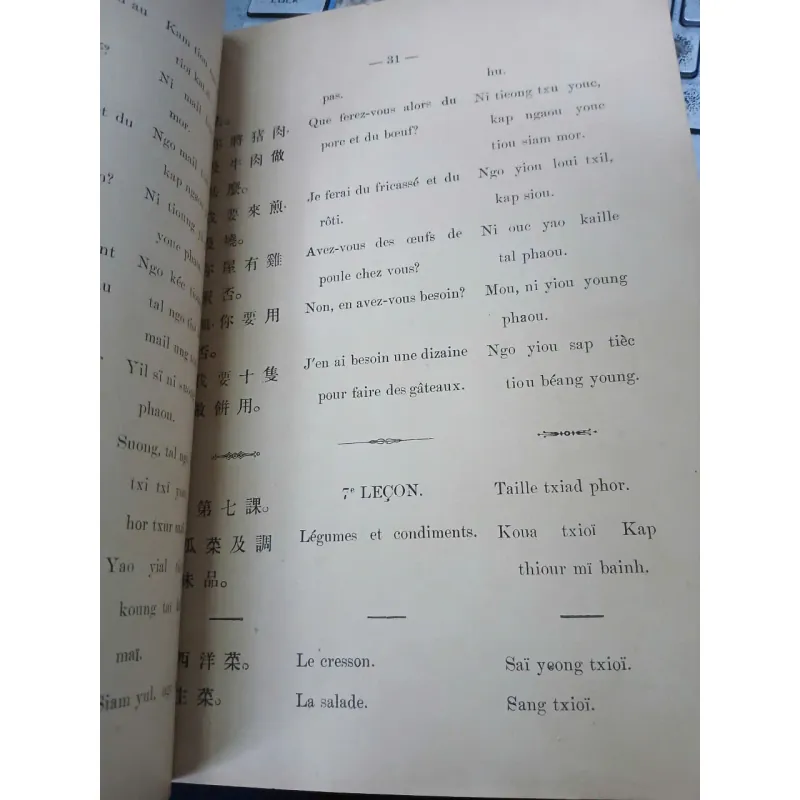 — 31 —
pas.
hu.
將猪肉·
Que ferez-vous alors du
Ni tieong txu youc,
牛肉做
porc et du bœuf?
kap ngaou youc
麼。
tiou siam mor.
要來煎·
Je ferai du fricassé et du
Ngo yiou loui txil,
燒。
rôti.
kap siou.
屋有雞
Avez-vous des œufs de
Ni ouc yao kaille
否。
poule chez vous?
tal phaou.
你要用
Non, en avez-vous besoin?
Mou, ni yiou young
否。
phaou.
要十隻
J'en ai besoin une dizaine
Ngo yiou sap tièc
做餅用。
pour faire des gâteaux.
tiou béang young.
第七課。
7e LEÇON.
Taille txiad phor.
瓜菜及調
Légumes et condiments.
Koua txioï Kap
味品。
thiour mï bainh.
西洋菜。
Le cresson.
Saï yeong txioï.
生菜。
La salade.
Sang txioï.
Kam tiou
tioï kal
Ni mail
mor.
t du
Ngo mail
kap ngaou
Ni tioung
youc phaou
Ngo kéc
tal ngo
mail ung
Yil sï ni
phaou.
Suong, tal ngo
txi txï
hor txur
Yao yial
koung taï
maï.
Siam yul,